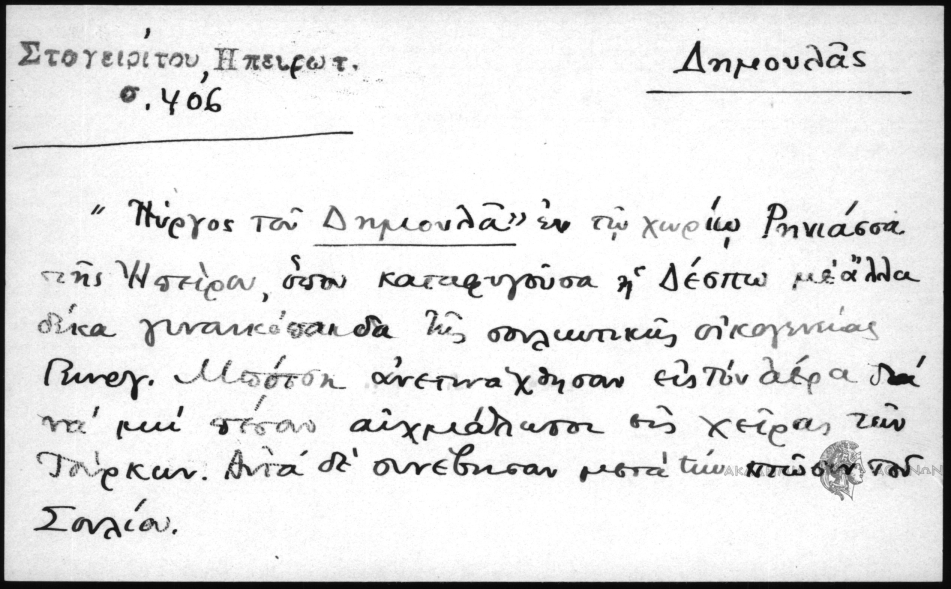 Σταγειρίτου, Ηπειρωτ.
σ. 406
Δημουλᾶς
"Πύργος τοῦ Δημουλᾶ" ἐν τῷ χωρίῳ Ρηνιάσσα
τῆς Ἠπείρου, ὅπου καταφυγοῦσα ἡ Δέσπω μὲ ἄλλα
δέκα γυναικόπαιδα τῆς σουλιωτικῆς οἰκογενείας
Γεωργ. Μπότση ἀνετινάχθησαν εἰς τὸν ἀέρα διὰ
νὰ μὴ πέσουν αἰχμάλωτοι εἰς χεῖρας τῶν
Τούρκων. Αὐτὰ δὲ συνέβησαν μετὰ τὴν πτῶσιν τοῦ
Σουλίου.